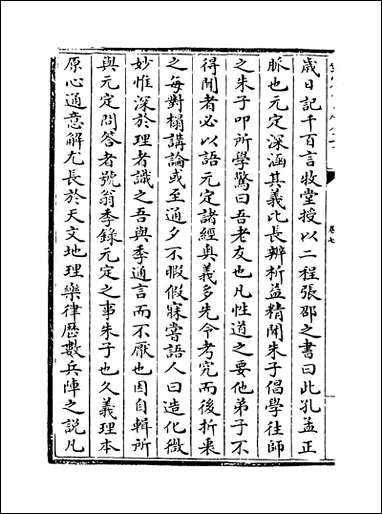 歲日記千百言牧堂授以二程張邵之書曰此孔孟正
脈也元定深涵其義比長辨析益精聞朱子倡學往師
之朱子叩所學驚曰吾老友也凡性道之要他弟子不
得聞者必以語元定諸經奥義多先令考究而後折衷
之每對榻講論或至通夕不暇假寐嘗語人曰造化微
妙惟深於理者識之吾與季通言而不厭也因自輯所
與元定問答者號翁季錄元定之事朱子也久義理本
原心通意解尤長於天文地理樂律歴數兵陣之說凡
卷七